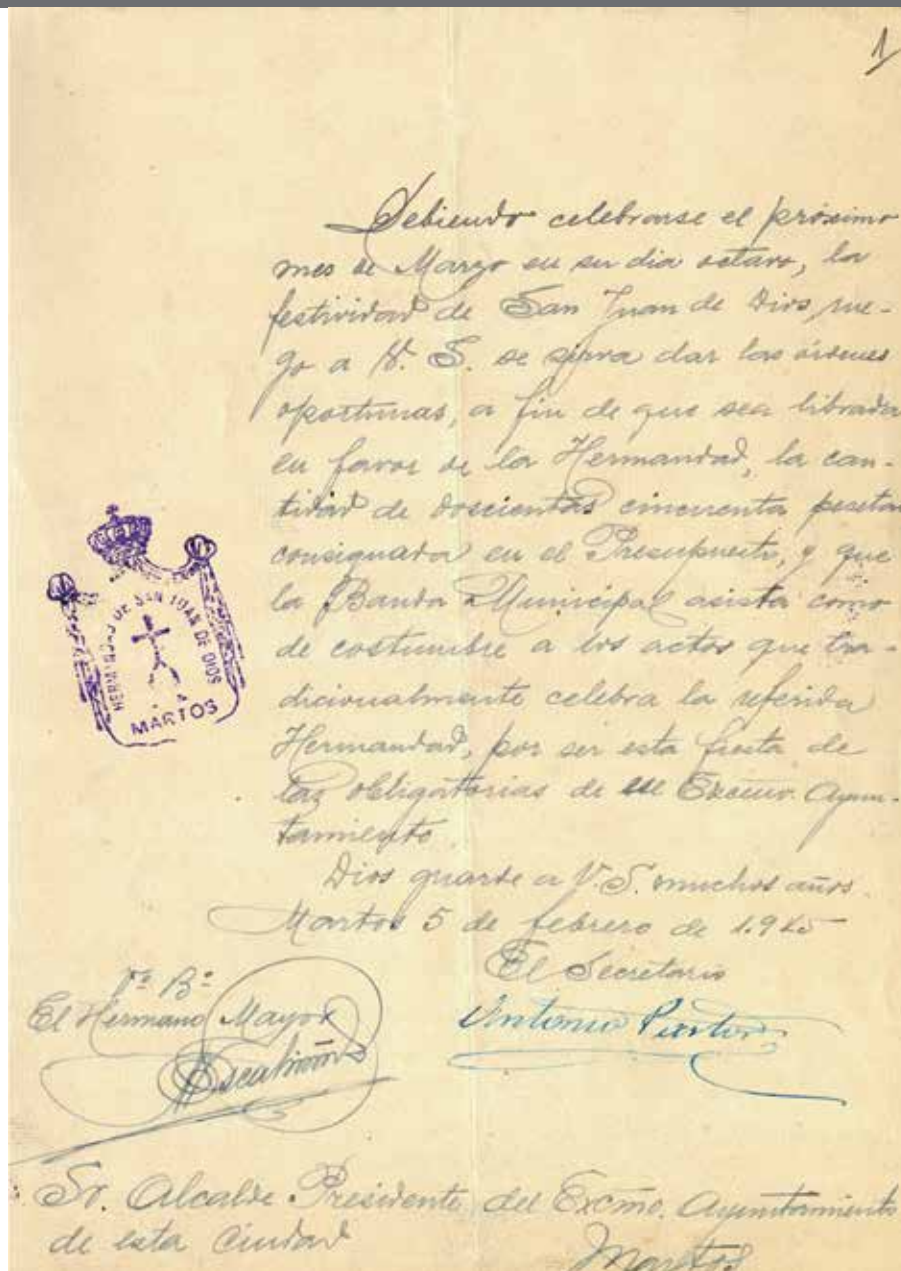 1
Debiendo celebrarse el próximo
mes de Marzo en su dia octavo, la
festividad de San Juan de Dios, rue-
go a V. S. se sirva dar las órdenes
oportunas, a fin de que sea librada
en favor de la Hermandad, la can-
tidad de doscientas cincuenta pesetas
consignada en el Presupuesto, y que
la Banda Municipal asista como
de costumbre a los actos que tra-
dicionalmente celebra la referida
Hermandad, por ser esta fiesta de
las obligatorias de ese Excmo. Ayun-
tamiento.
Dios guarde a V. S. muchos años.
Martos 5 de febrero de
El Secretario
Vº Bº
El Hermano Mayor
Antonio
HERMANDAD DE SAN JUAN DE DIOS
MARTOS
Sr. Alcalde Presidente del Excmo. Ayuntamiento
de esta Ciudad
Martos